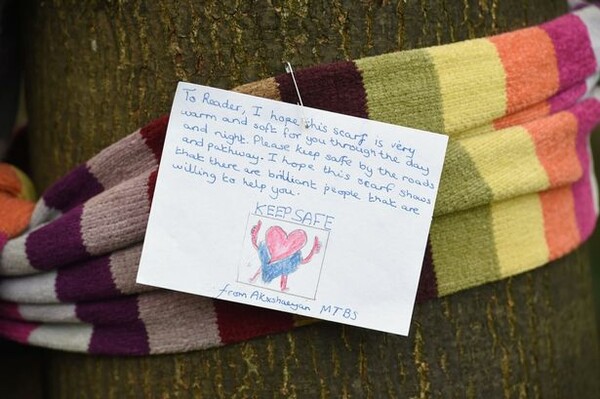 To Reader, I hope this scarf is very
warm and soft for you through the day
and night. Please keep safe by the roads
and pathway. I hope this scarf shows
that there are brilliant people that are
willing to help you.
KEEP SAFE
from MTBS